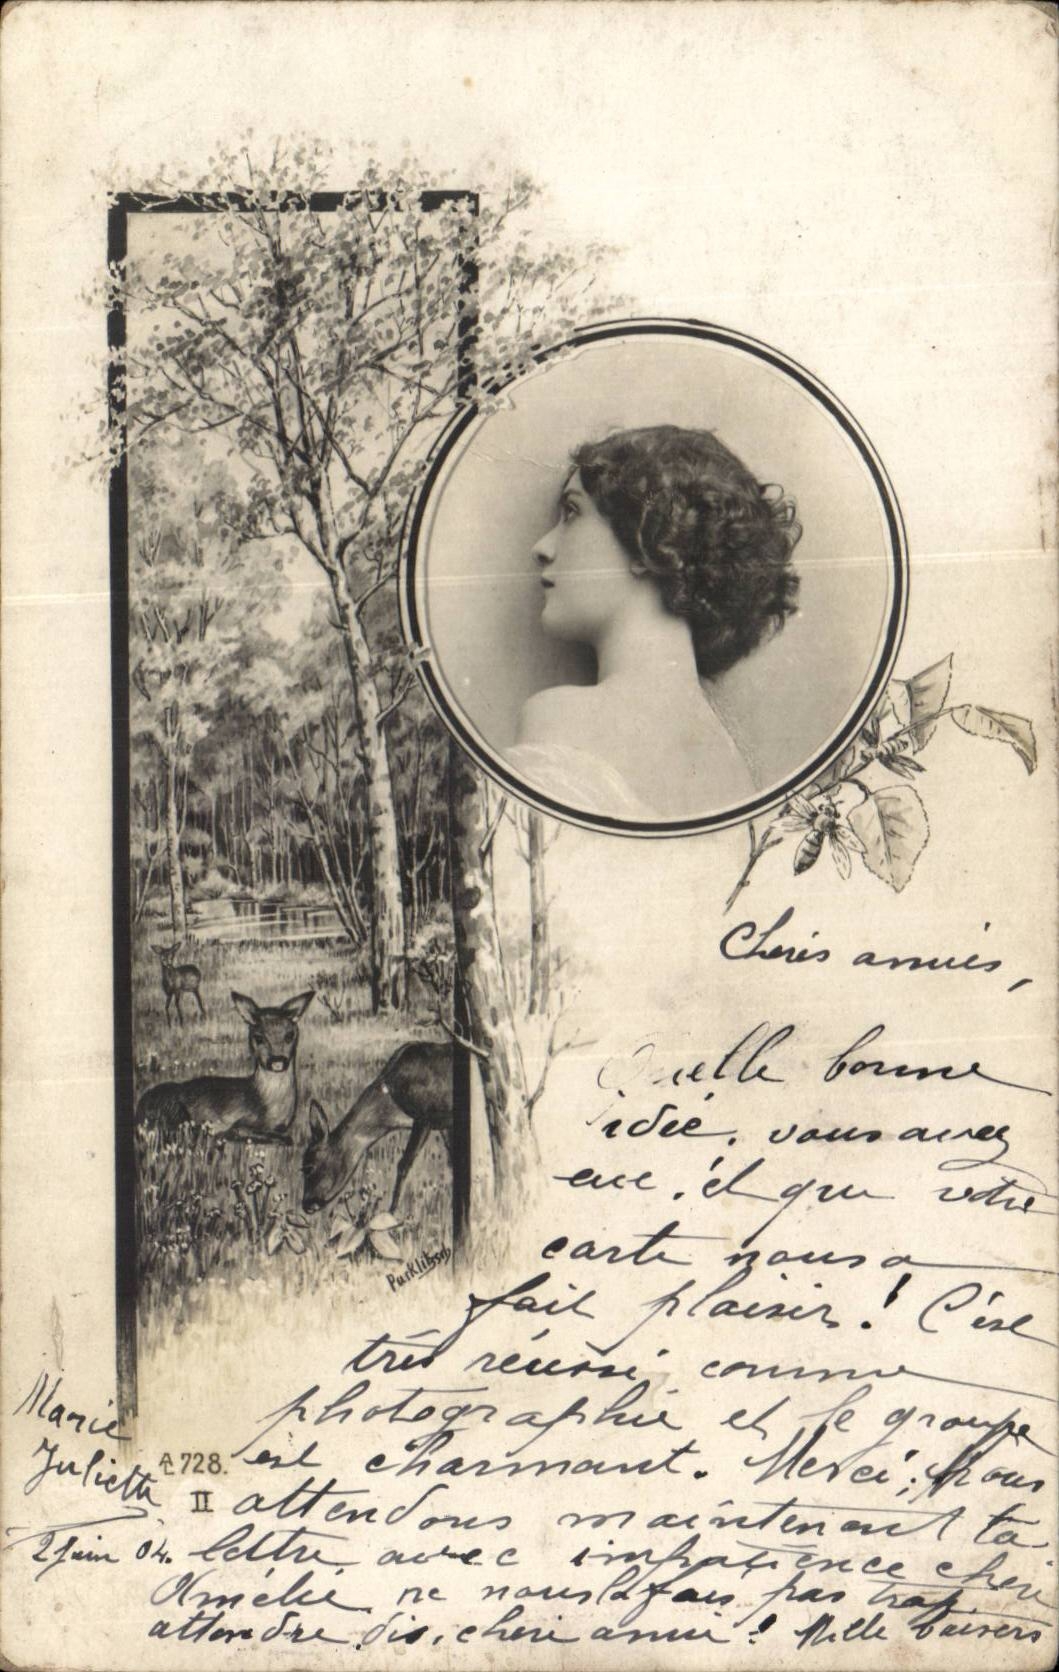 Chéris amies,
Quelle bonne
idée, vous avez
eue, et que votre
carte nous a
fait plaisir! C'est
très réussi comme
photographie et le groupe
est charmant. Merci, Nous
attendons maintenant ta
lettre avec impatience chère
Amélie ne nous la fais pas trop
attendre, dis, chère amie! Mille baisers
Marie
Juliette
2 Juin 04.
728.
II